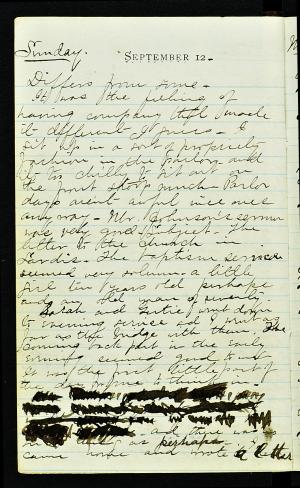 Sunday.
SEPTEMBER 12.
Differs from some.
It was the feeling of
having company that made
it different I guess. I
sit up in a sort of propriety
fashion in the parlor and
it is too chilly to sit out on
the front stoop much. Parlor
days arent awful nice ones
any way. Mr. Johnson's sermon
was very good. Subject. The
letter to the Church in
Sardis. The baptism service
seemed very solemn. a little
girl ten years old perhaps
and an old man of seventy.
Sarah and Gertie went down
to evening service and I went as
far as the bridge with them. The
coming back part in the early
evening seemed good to me
It was the first little part of
the day
and there
as perhaps
came home and wrote a letter